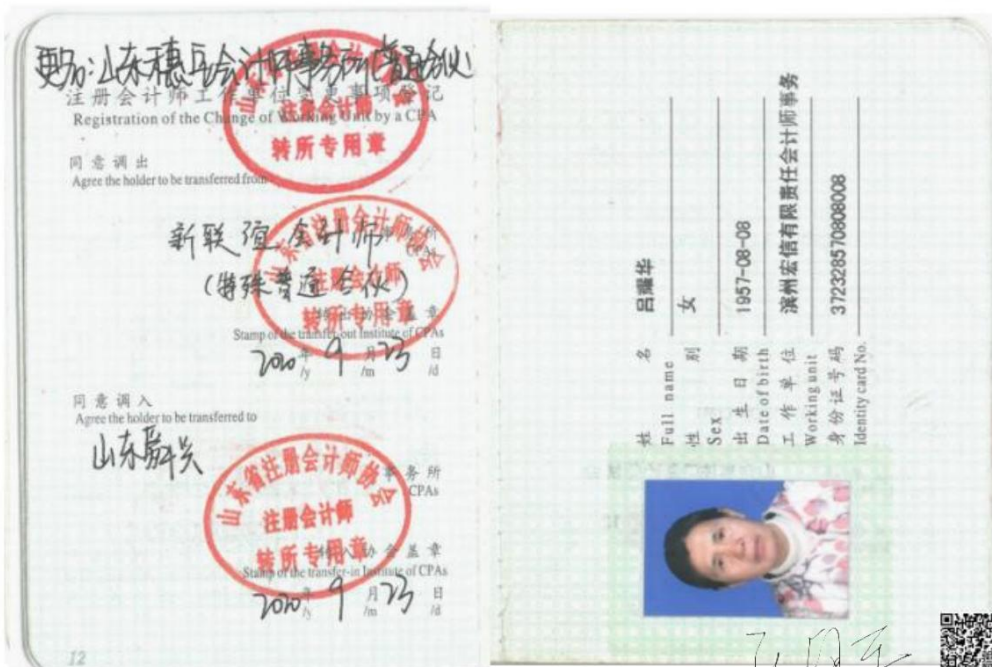 更名:山东穗丘会计师事务所(普通合伙)
注册会计师工作单位变更事项登记
Registration of the Change of Working Unit by a CPA
山东省注册会计师协会
注册会计师
转所专用章
同意调出
Agree the holder to be transferred from
新联谊会计师
事务所
CPAs
(特殊普通合伙)
山东省注册会计师协会
注册会计师
转所专用章
转出协会盖章
Stamp of the transfer-out Institute of CPAs
2020年 9月 23日
/y /m /d
同意调入
Agree the holder to be transferred to
山东舜兴
事务所
CPAs
山东省注册会计师协会
注册会计师
转所专用章
转入协会盖章
Stamp of the transfer-in Institute of CPAs
2020年 9月 23日
/y /m /d
12
姓名 吕耀华
Full name
性别 女
Sex
出生日期 1957-08-08
Date of birth
工作单位 滨州宏信有限责任会计师事务
Working unit
身份证号码 372328570808008
Identity card No.